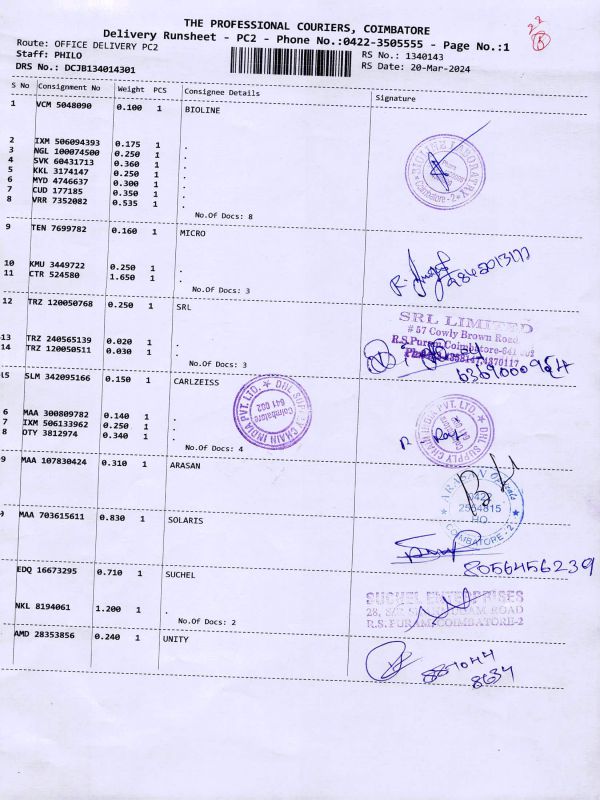 THE PROFESSIONAL COURIERS, COIMBATORE
Delivery Runsheet - PC2 - Phone No.:0422-3505555 - Page No.:1
Route: OFFICE DELIVERY PC2 RS No.: 1340143
Staff: PHILO RS Date: 20-Mar-2024
DRS No.: DCJB134014301
S No Consignment No Weight PCS Consignee Details Signature
1 VCM 5048090 0.100 1 BIOLINE
2 IXM 506094393 0.175 1 .
3 NGL 100074500 0.250 1 .
4 SVK 60431713 0.360 1 .
5 KKL 3174147 0.250 1 .
6 MYD 4746637 0.300 1 .
7 CUD 177185 0.350 1 .
8 VRR 7352082 0.535 1 .
No.Of Docs: 8
9 TEN 7699782 0.160 1 MICRO
10 KMU 3449722 0.250 1 .
11 CTR 524580 1.650 1 .
No.Of Docs: 3
12 TRZ 120050768 0.250 1 SRL
SRL LIMITED
# 57 Cowly Brown Road
R.S.Puram, Coimbatore-641 002
13 TRZ 240565139 0.020 1 .
14 TRZ 120050511 0.030 1 .
No.Of Docs: 3
15 SLM 342095166 0.150 1 CARLZEISS
DHL SUPPLY CHAIN INDIA PVT. LTD.
Coimbatore
641 002
6 MAA 300809782 0.140 1 .
7 IXM 506133962 0.250 1 .
8 DTY 3812974 0.340 1 .
No.Of Docs: 4
9 MAA 107830424 0.310 1 ARASAN
0422
2564815
HO
COIMBATORE - 2
MAA 703615611 0.830 1 SOLARIS
8056456239
EDQ 16673295 0.710 1 SUCHEL
SUCHEL ENTERPRISES
R.S.PURAM, COIMBATORE-2
NKL 8194061 1.200 1 .
No.Of Docs: 2
AMD 28353856 0.240 1 UNITY